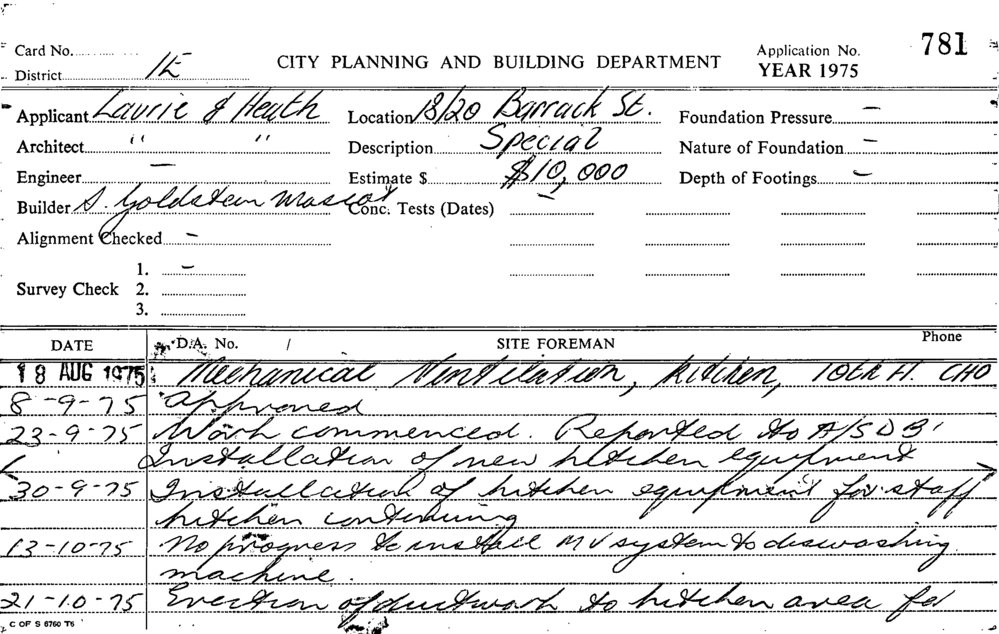 Card No.
District 1E
CITY PLANNING AND BUILDING DEPARTMENT
Application No. 781
YEAR 1975
Applicant Laurie & Heath
Location 18/20 Barrack St.
Foundation Pressure –
Architect " "
Description Special
Nature of Foundation –
Engineer –
Estimate $ $10,000
Depth of Footings –
Builder S. Goldstein Mascot
Conc. Tests (Dates) –
Alignment Checked –
Survey Check
1. –
2.
3.
DATE D.A. No. / SITE FOREMAN Phone
18 AUG 1975 Mechanical Ventilation, kitchen, 10th Fl. CHO
8-9-75 Approved
23-9-75 Work commenced. Reported to A/SDB'
Installation of new kitchen equipment
30-9-75 Installation of kitchen equipment for staff
kitchen continuing
13-10-75 No progress to install MV system to diswashing
machine.
21-10-75 Erection of ductwork to kitchen area for
C OF S 6760 T6